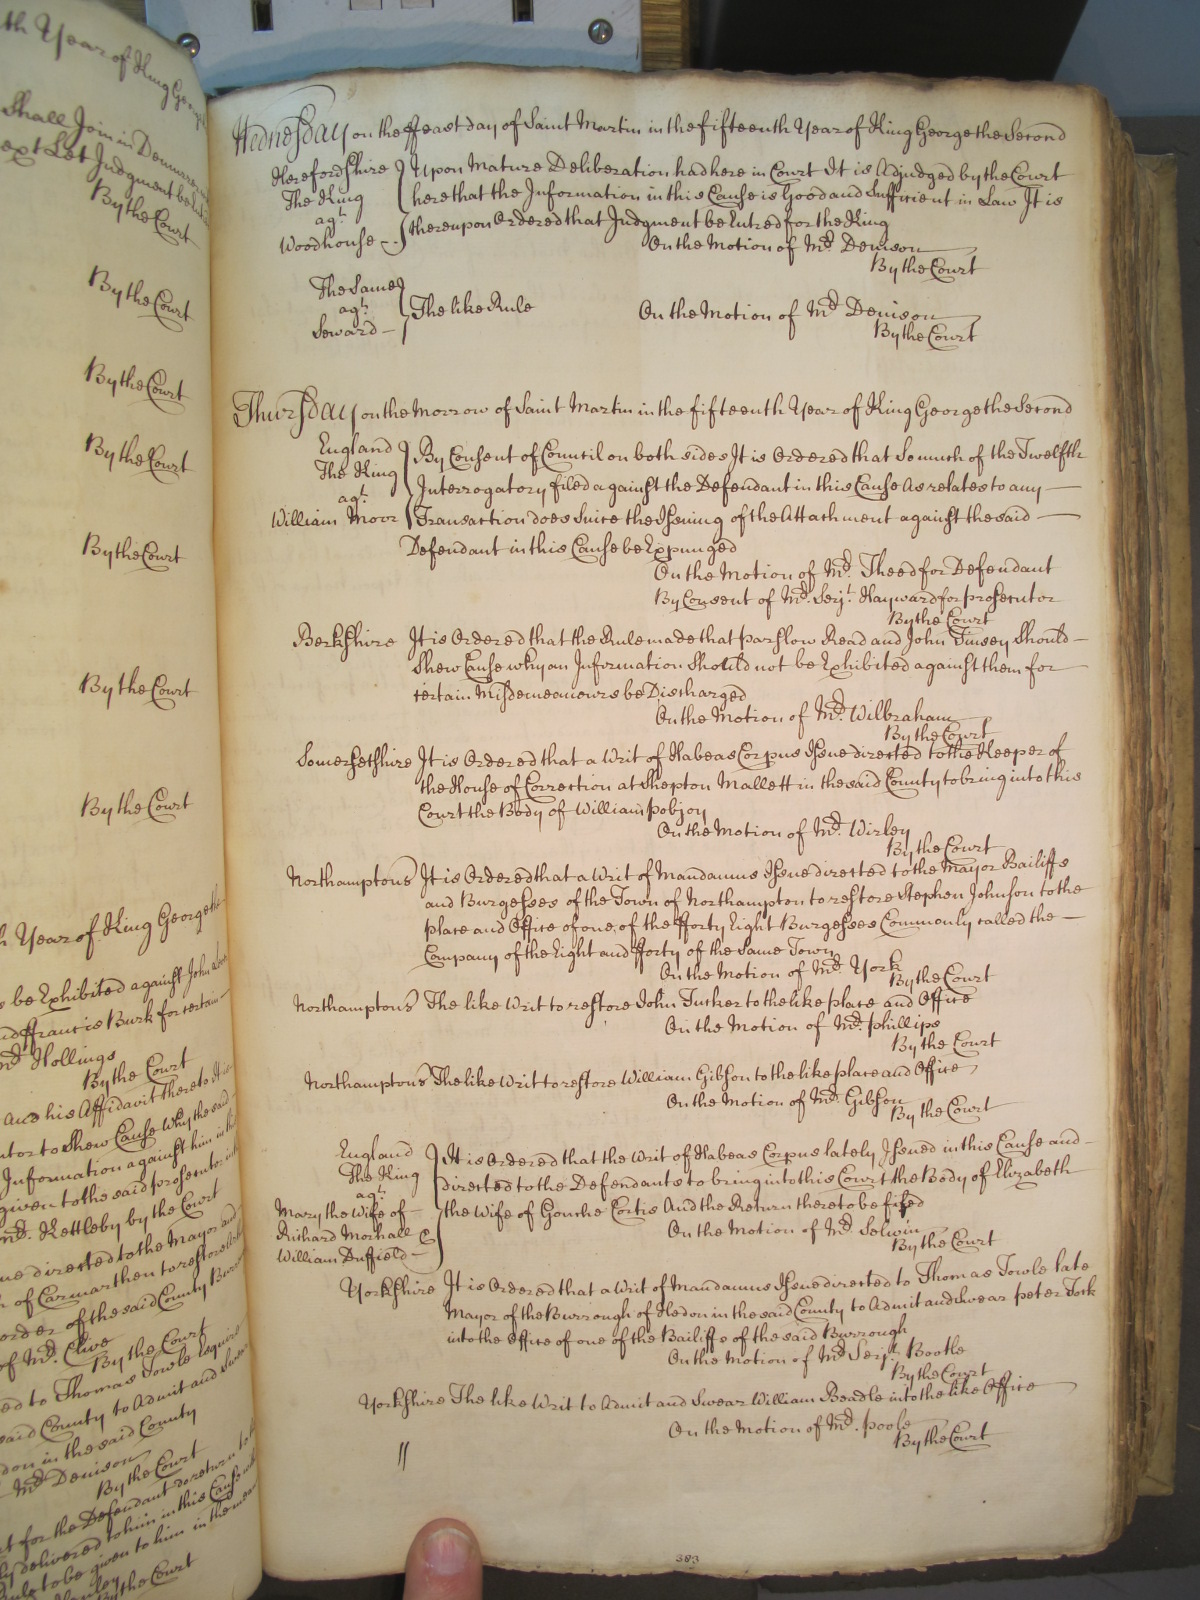 th Year of King Geor
Shall Join in Demurrer
ext Let Judgment be
By the Court
By the Court
By the Court
By the Court
By the Court
By the Court
By the Court
h Year of King George the
s be Exhibited against John
and ffrancis Burk for certain
Mr. Hollings
By the Court
and his Affidavit thereto It is
utor to Shew Cause Why the said
Information against him
given to the said prosecutor
Mr. Kettleby by the Court
ue directed to the Mayor and
of Carmarthen to restore
order of the said County
of Mr. Clive
By the Court
ed to Thomas Towle Esquire
said County to Admit and Swear
don in the said County
Mr. Denison
By the Court
t for the Defendant do return to
ly delivered to him in this Cause
Rule to be given to him in the mean
By the Court
Wednesday on the ffeast day of Saint Martin in the fifteenth Year of King George the Second
Herefordshire Upon Mature Deliberation had here in Court It is Adjudged by the Court
The King here that the Information in this Cause is Good and Sufficient in Law It is
agt.
Woodhouse thereupon Ordered that Judgment be Entred for the King
On the Motion of Mr. Denison
By the Court
The Same
agt. The like Rule On the Motion of Mr. Denison
Seward By the Court
Thursday on the Morrow of Saint Martin in the fifteenth Year of King George the Second
England By Consent of Council on both sides It is Ordered that So much of the Twelfth
The King Interrogatory filed against the Defendant in this Cause As relates to any
agt.
William Moor Transaction does Since the Issuing of the Attachment against the said
Defendant in this Cause be Expunged
On the Motion of Mr. Theed for Defendant
By Consent of Mr. Serjt. Hayward for prosecutor
By the Court
Berkshire It is Ordered that the Rule made that parslow Read and John Tinsey Should
Shew Cause why an Information Should not be Exhibited against them for
certain Misdemeanours be Discharged
On the Motion of Mr. Wilbraham
By the Court
Somersetshire It is Ordered that a Writ of Habeas Corpus Issue directed to the Keeper of
the House of Correction at Shepton Mallett in the said County to bring into this
Court the Body of William pobjoy
On the Motion of Mr. Wirley
By the Court
Northamptons It is Ordered that a Writ of Mandamus Issue directed to the Mayor Bailiffs
and Burgesses of the Town of Northampton to restore Stephen Johnson to the
place and Office of one of the fforty Eight Burgesses Commonly called the
Company of the Eight and fforty of the Same Town
On the Motion of Mr. York
By the Court
Northamptons The like Writ to restore John Tucker to the like place and Office
On the Motion of Mr. phillips
By the Court
Northamptons The like Writ to restore William Gibson to the like place and Office
On the Motion of Mr. Gibson
By the Court
England It is Ordered that the Writ of Habeas Corpus lately Issued in this Cause and
The King directed to the Defendants to bring into this Court the Body of Elizabeth
agt.
Mary the Wife of the Wife of Gouche Cortis And the Return thereto be filed
Richard Morhall & On the Motion of Mr. Selwin
William Duffield By the Court
Yorkshire It is Ordered that a Writ of Mandamus Issue directed to Thomas Towle late
Mayor of the Burrough of Hedon in the said County to Admit and Swear peter Jock
into the Office of one of the Bailiffs of the said Burrough
On the Motion of Mr. Serjt. Bootle
By the Court
Yorkshire The like Writ to Admit and Swear William Beadle into the like Office
On the Motion of Mr. poole
By the Court
383